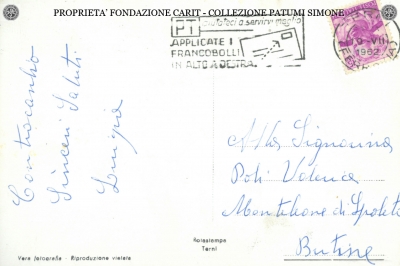 PROPRIETA' FONDAZIONE CARIT - COLLEZIONE PATUMI SIMONE
PT aiutateci a servirvi meglio
APPLICATE I
FRANCOBOLLI
IN ALTO A DESTRA
1962
Contraccambio
Sinceri Saluti
Luigia
Alla Signorina
Poli Valenca
Monteleone di Spoleto
Butino
Rotastampa
Terni
Vera fotografia - Riproduzione vietata